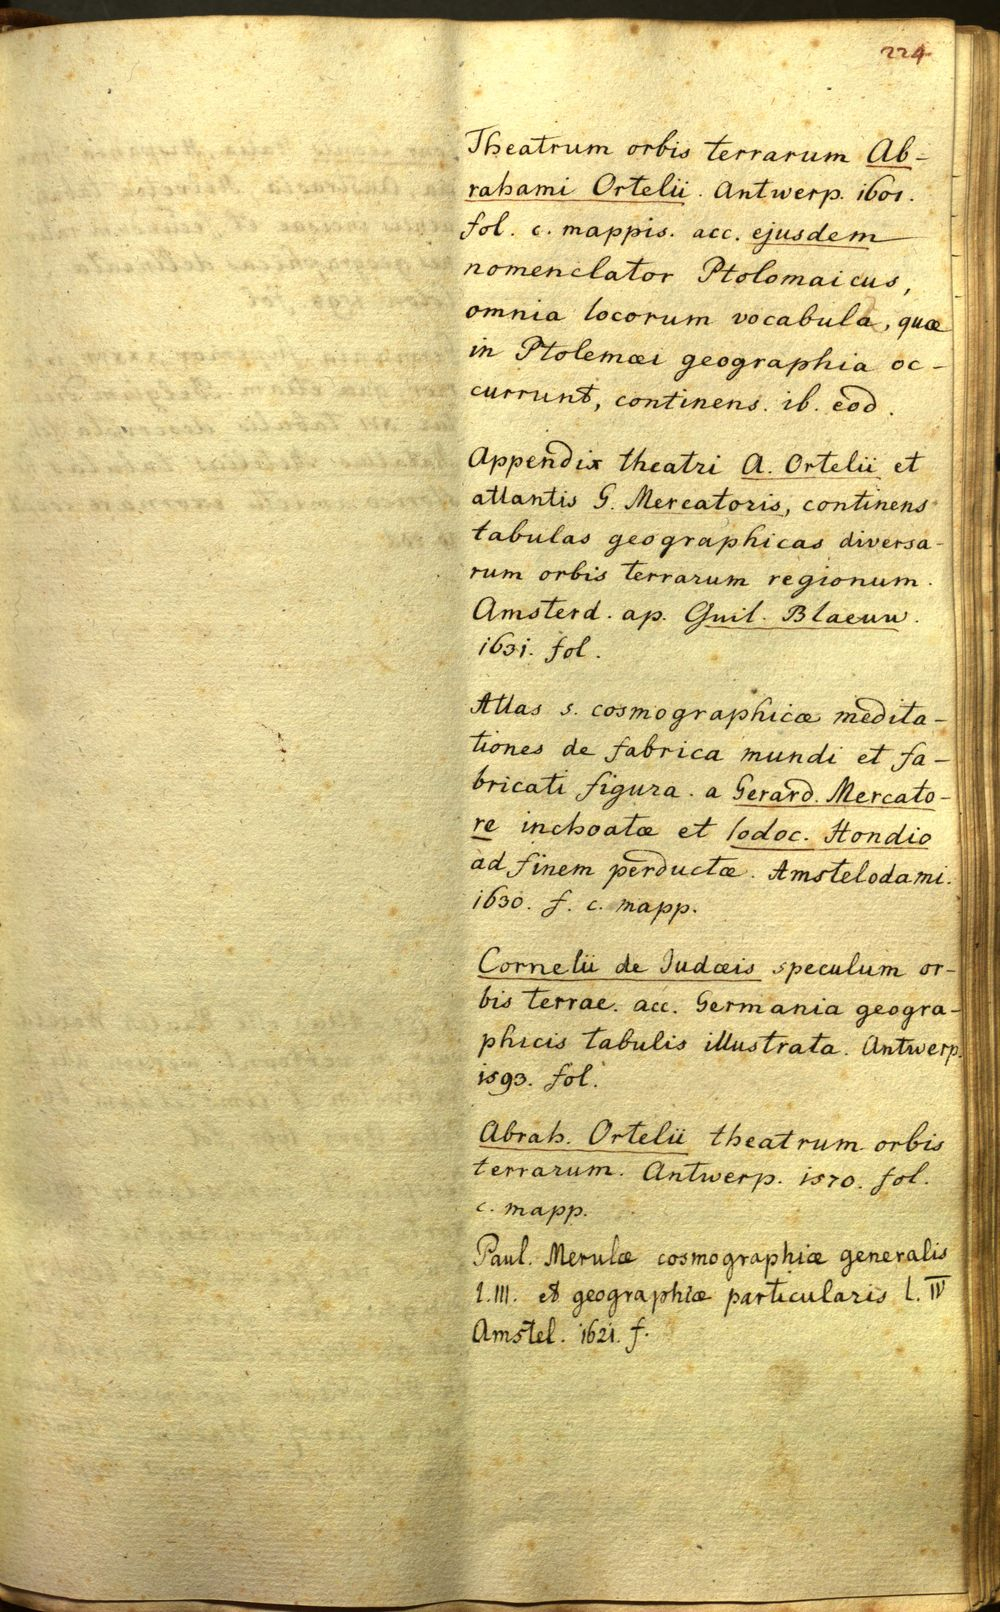 224
Theatrum orbis terrarum Ab-
rahami Ortelii. Antwerp. 1601.
fol. c. mappis. acc. ejusdem
nomenclator Ptolomaicus,
omnia locorum vocabula, quæ
in Ptolemæi geographia oc-
currunt, continens. ib. eod.
Appendix theatri A. Ortelii et
atlantis G. Mercatoris, continens
tabulas geographicas diversa-
rum orbis terrarum regionum.
Amsterd. ap. Guil. Blaeuw.
1631. fol.
Atlas s. cosmographicæ medita-
tiones de fabrica mundi et fa-
bricati figura. a Gerard. Mercato-
re inchoatæ et Iodoc. Hondio
ad finem perductæ. Amstelodami.
1630. f. c. mapp.
Cornelii de Judæis speculum or-
bis terrae. acc. Germania geogra-
phicis tabulis illustrata. Antwerp.
1593. fol.
Abrah. Ortelii theatrum orbis
terrarum. Antwerp. 1570. fol.
c. mapp.
Paul. Merulæ cosmographiæ generalis
l. III. et geographiæ particularis l. IV
Amstel. 1621. f.